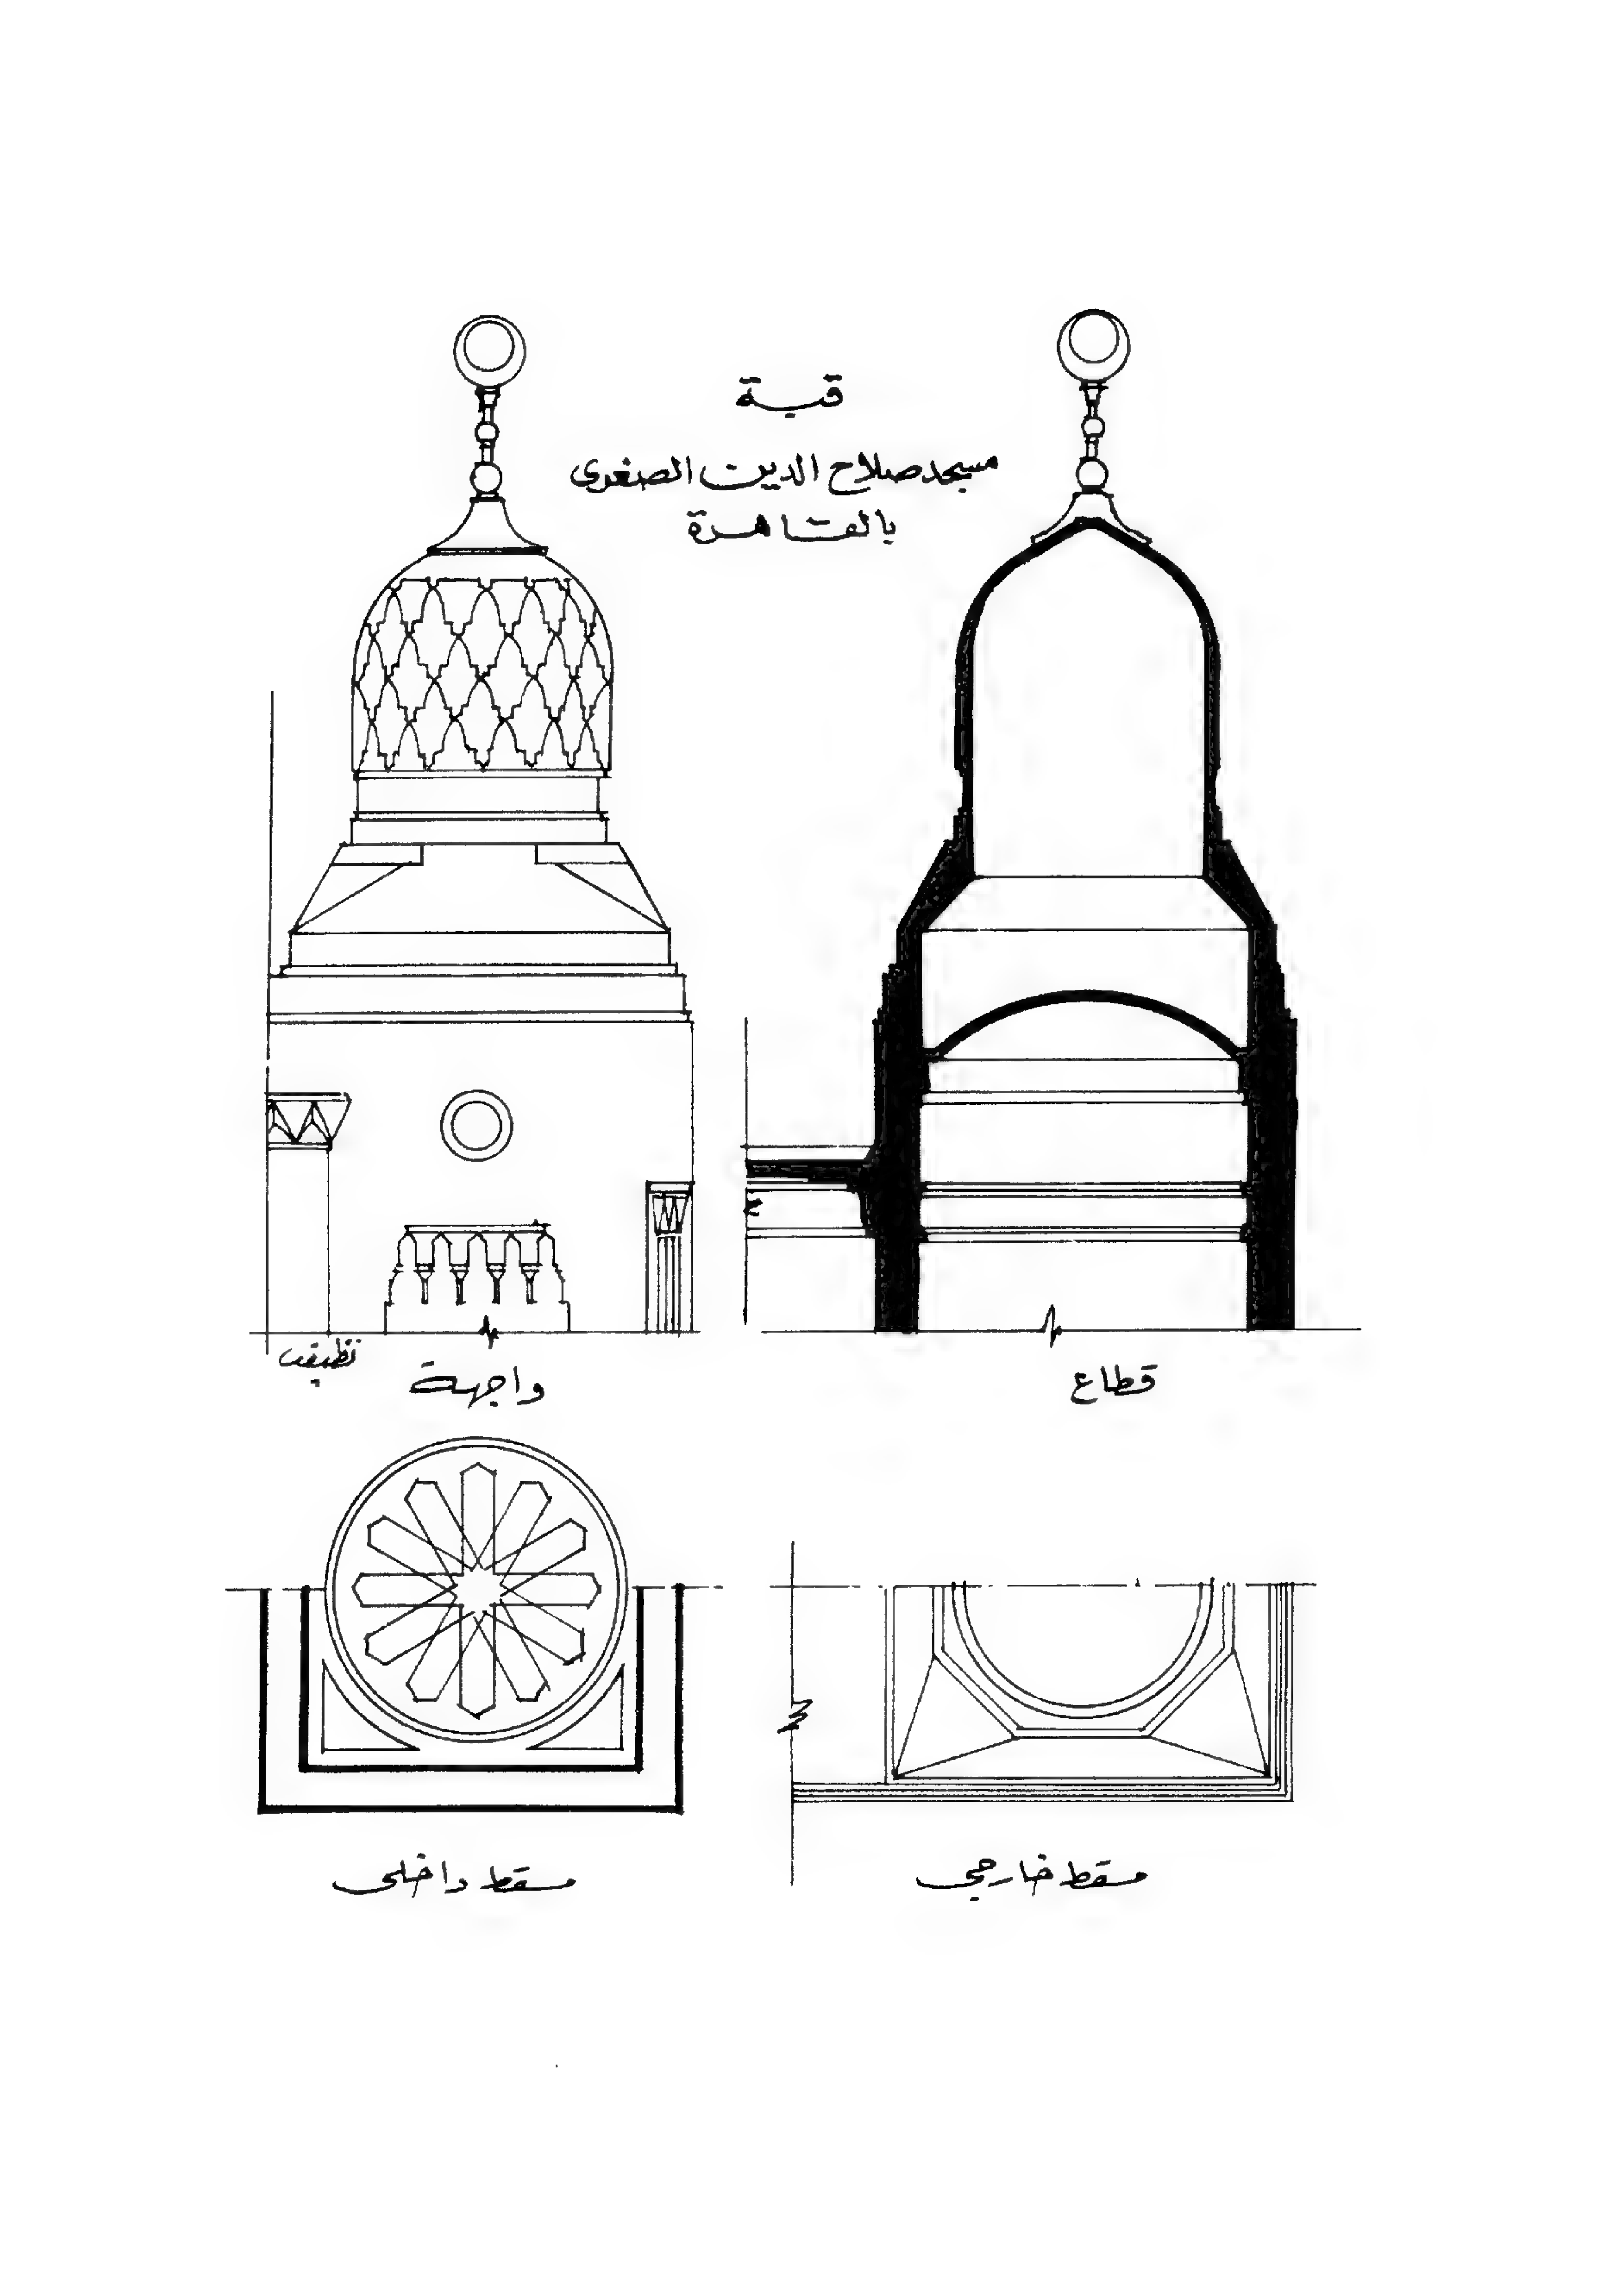 قبة
مسجد صلاح الدين الصغرى
بالقاهرة
نظيف
واجهة
قطاع
مسقط داخلى
مسقط خارجي